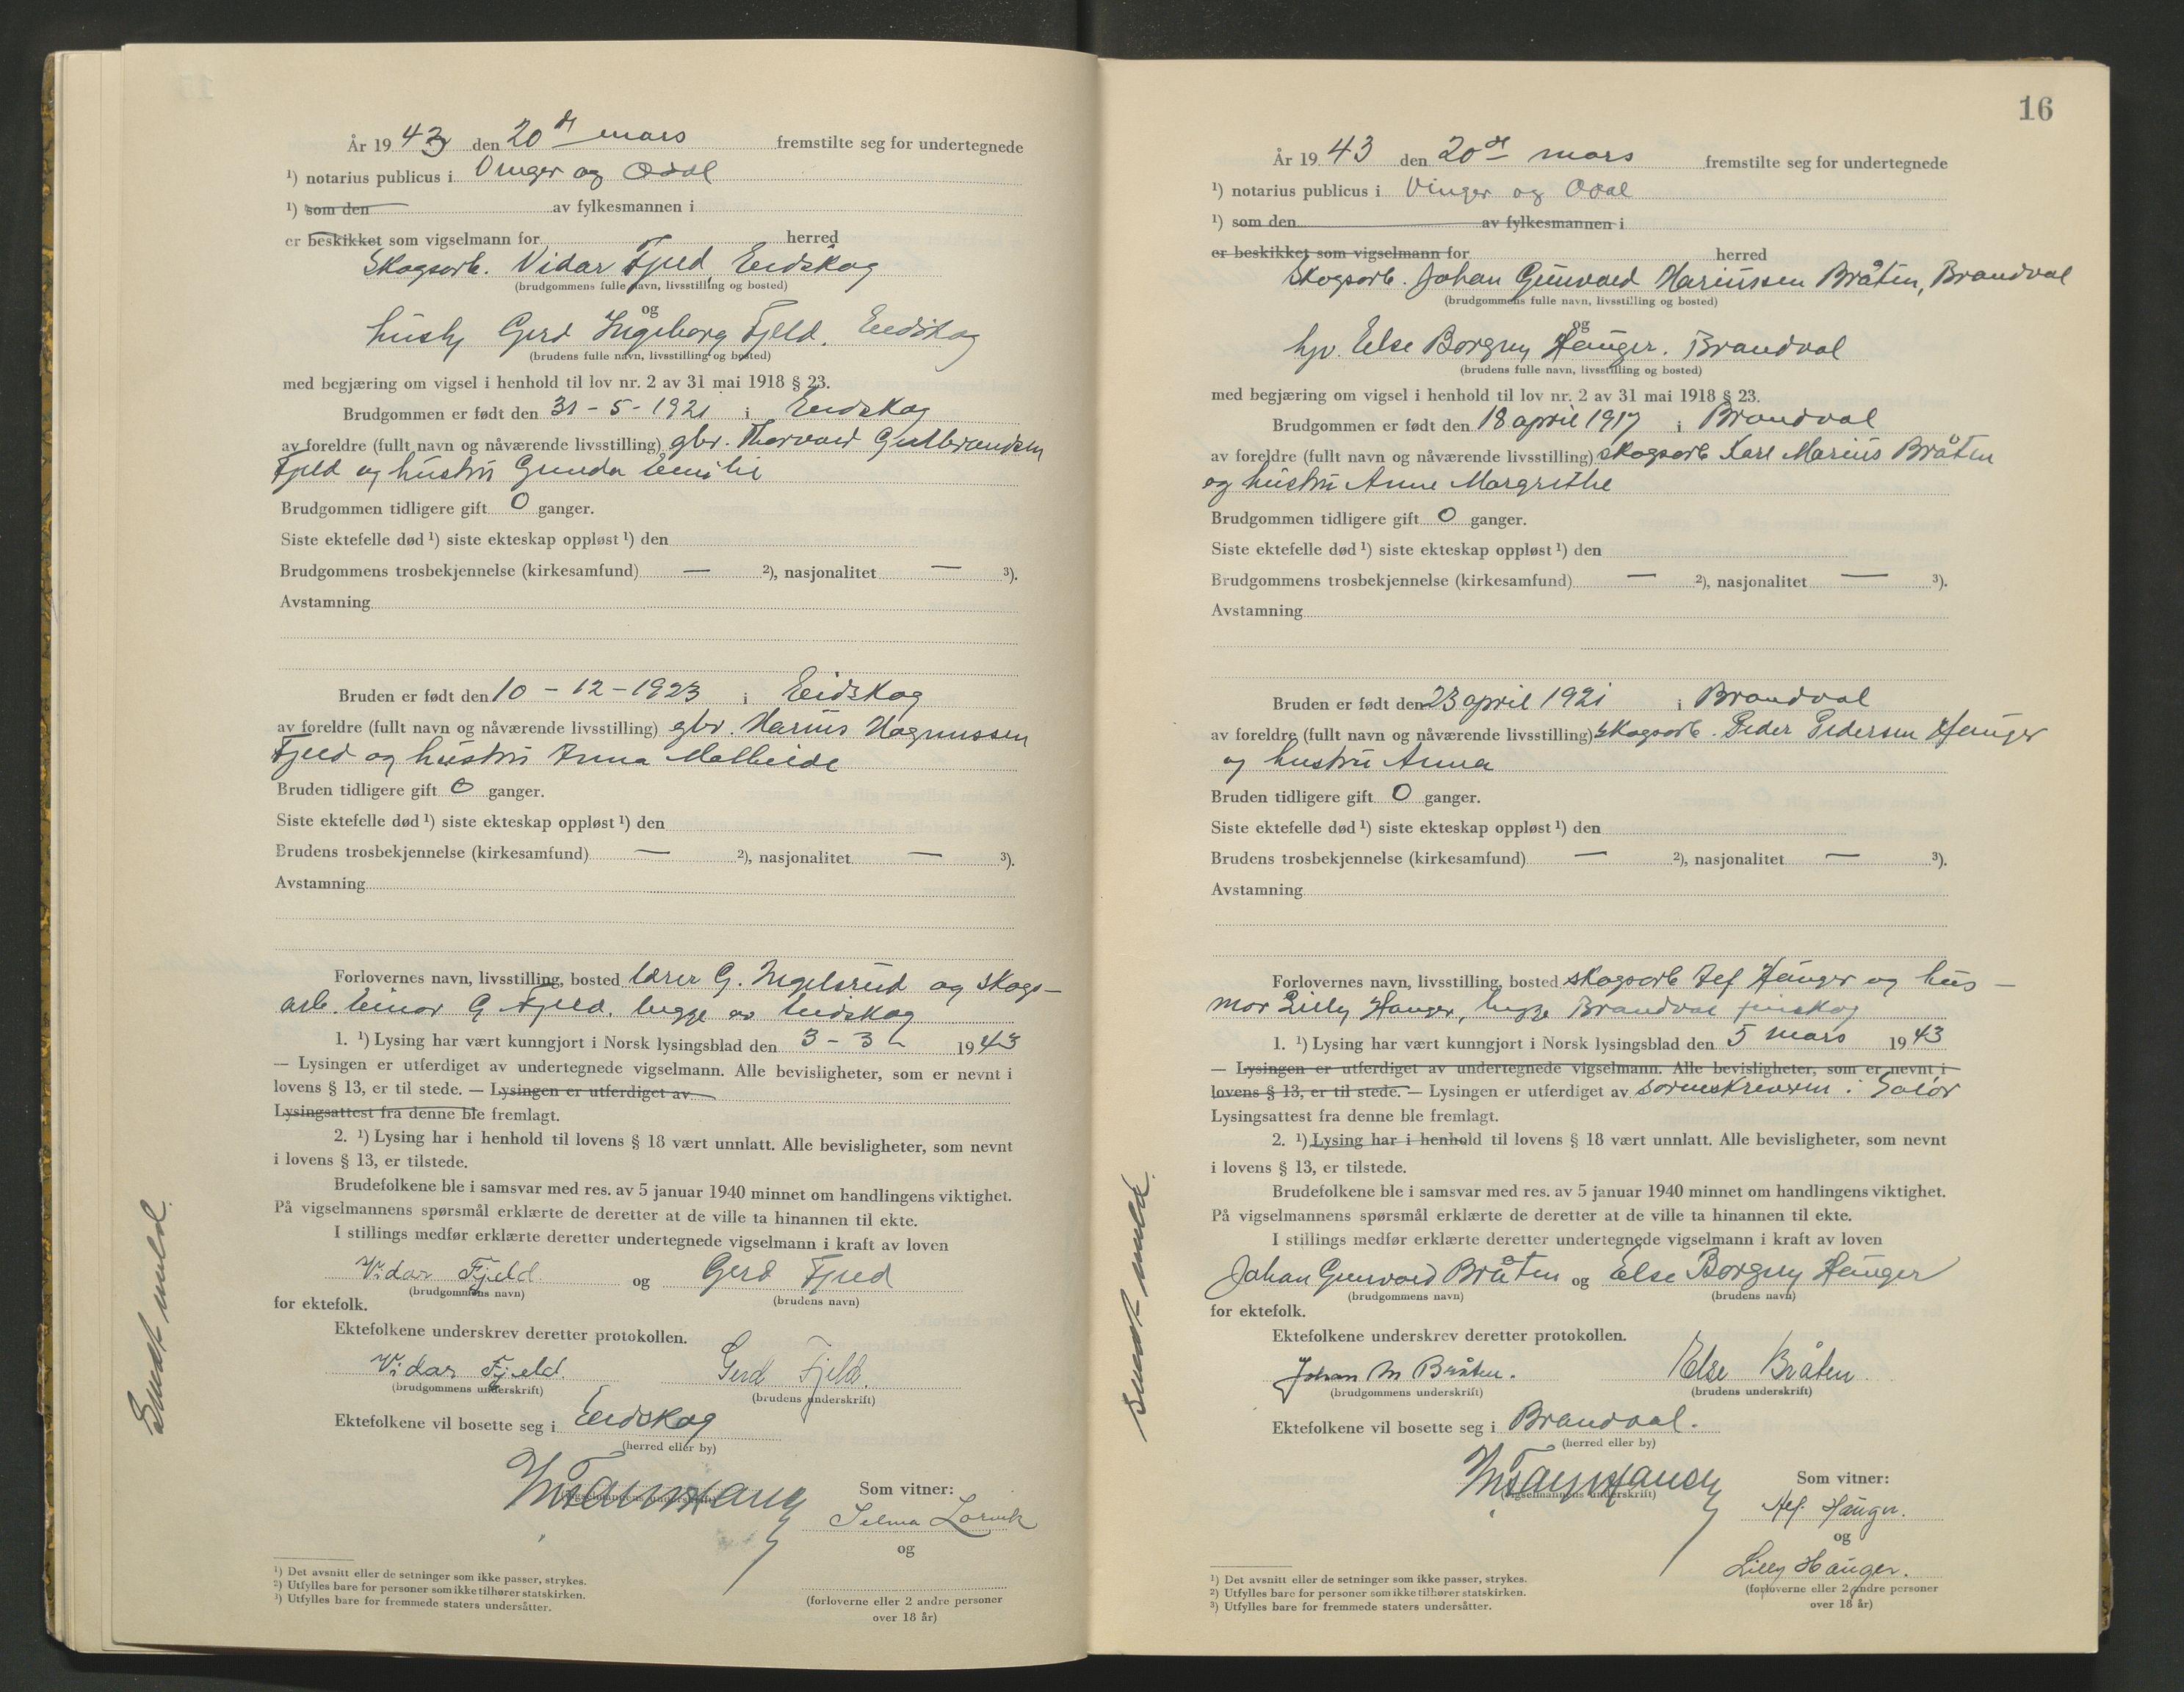 År 19 43 den 20de mars fremstilte seg for undertegnede
¹) notarius publicus i Vinger og Odal
¹) som den av fylkesmannen i
er beskikket som vigselmann for herred
Skogsarb. Vidar Fjeld, Eidskog
(brudgommens fulle navn, livsstilling og bosted)
og
hush. Gerd Ingeborg Fjeld. Eidskog
(brudens fulle navn, livsstilling og bosted)
med begjæring om vigsel i henhold til lov nr. 2 av 31 mai 1918 § 23.
Brudgommen er født den 31-5-1921 i Eidskog
av foreldre (fullt navn og nåværende livsstilling) gbr. Thorvald Gulbrandsen
Fjeld og hustru Gunda Emilie
Brudgommen tidligere gift 0 ganger.
Siste ektefelle død ¹) siste ekteskap oppløst ¹) den
Brudgommens trosbekjennelse (kirkesamfund) — ²), nasjonalitet — ³).
Avstamning
Bruden er født den 10-12-1923 i Eidskog
av foreldre (fullt navn og nåværende livsstilling) gbr. Marius Magnussen
Fjeld og hustru Anna Mathilde
Bruden tidligere gift 0 ganger.
Siste ektefelle død ¹) siste ekteskap oppløst ¹) den
Brudens trosbekjennelse (kirkesamfund) — ²), nasjonalitet — ³).
Avstamning
Forlovernes navn, livsstilling, bosted lærer G. Ingelsrud og skogs-
arb. Einar G Fjeld. begge av Eidskog
1. ¹) Lysing har vært kunngjort i Norsk lysingsblad den 3-3 1943
— Lysingen er utferdiget av undertegnede vigselmann. Alle bevisligheter, som er nevnt i
lovens § 13, er til stede. — Lysingen er utferdiget av
Lysingsattest fra denne ble fremlagt.
2. ¹) Lysing har i henhold til lovens § 18 vært unnlatt. Alle bevisligheter, som nevnt
i lovens § 13, er tilstede.
Brudefolkene ble i samsvar med res. av 5 januar 1940 minnet om handlingens viktighet.
På vigselmannens spørsmål erklærte de deretter at de ville ta hinannen til ekte.
I stillings medfør erklærte deretter undertegnede vigselmann i kraft av loven
Vidar Fjeld og Gerd Fjeld
(brudgommens navn) (brudens navn)
for ektefolk.
Ektefolkene underskrev deretter protokollen.
Vidar Fjeld. Gerd Fjeld.
(brudgommens underskrift) (brudens underskrift)
Ektefolkene vil bosette seg i Eidskog
(herred eller by)
(vigselmannens underskrift)
Som vitner:
Selma
og
(forloverne eller 2 andre personer
over 18 år)
¹) Det avsnitt eller de setninger som ikke passer, strykes.
²) Utfylles bare for personer som ikke tilhører statskirken.
³) Utfylles bare for fremmede staters undersåtter.
Sendt meld.
16
År 19 43 den 20de mars fremstilte seg for undertegnede
¹) notarius publicus i Vinger og Odal
¹) som den av fylkesmannen i
er beskikket som vigselmann for herred
Skogsarb. Johan Gunvald Mariussen Bråten, Brandval
(brudgommens fulle navn, livsstilling og bosted)
og
hjv. Else Borgny Hauger. Brandval
(brudens fulle navn, livsstilling og bosted)
med begjæring om vigsel i henhold til lov nr. 2 av 31 mai 1918 § 23.
Brudgommen er født den 18 april 1917 i Brandval
av foreldre (fullt navn og nåværende livsstilling) skogsarb Karl Marius Bråten
og hustru Anne Margrethe
Brudgommen tidligere gift 0 ganger.
Siste ektefelle død ¹) siste ekteskap oppløst ¹) den
Brudgommens trosbekjennelse (kirkesamfund) — ²), nasjonalitet — ³).
Avstamning
Bruden er født den 23 april 1921 i Brandval
av foreldre (fullt navn og nåværende livsstilling) skogsarb. Peder Pedersen Hauger
og hustru Anna
Bruden tidligere gift 0 ganger.
Siste ektefelle død ¹) siste ekteskap oppløst ¹) den
Brudens trosbekjennelse (kirkesamfund) — ²), nasjonalitet — ³).
Avstamning
Forlovernes navn, livsstilling, bosted skogsarb Alf Hauger og hus-
mor Lilly Hauger, begge Brandval finskog
1. ¹) Lysing har vært kunngjort i Norsk lysingsblad den 5 mars 1943
— Lysingen er utferdiget av undertegnede vigselmann. Alle bevisligheter, som er nevnt i
lovens § 13, er til stede. — Lysingen er utferdiget av sorenskriveren i Solør
Lysingsattest fra denne ble fremlagt.
2. ¹) Lysing har i henhold til lovens § 18 vært unnlatt. Alle bevisligheter, som nevnt
i lovens § 13, er tilstede.
Brudefolkene ble i samsvar med res. av 5 januar 1940 minnet om handlingens viktighet.
På vigselmannens spørsmål erklærte de deretter at de ville ta hinannen til ekte.
I stillings medfør erklærte deretter undertegnede vigselmann i kraft av loven
Johan Gunvald Bråten og Else Borgny Hauger
(brudgommens navn) (brudens navn)
for ektefolk.
Ektefolkene underskrev deretter protokollen.
Johan M Bråten. Else Bråten
(brudgommens underskrift) (brudens underskrift)
Ektefolkene vil bosette seg i Brandval.
(herred eller by)
(vigselmannens underskrift)
Som vitner:
Alf. Hauger.
og
Lilly Hauger.
(forloverne eller 2 andre personer
over 18 år)
¹) Det avsnitt eller de setninger som ikke passer, strykes.
²) Utfylles bare for personer som ikke tilhører statskirken.
³) Utfylles bare for fremmede staters undersåtter.
Sendt meld.